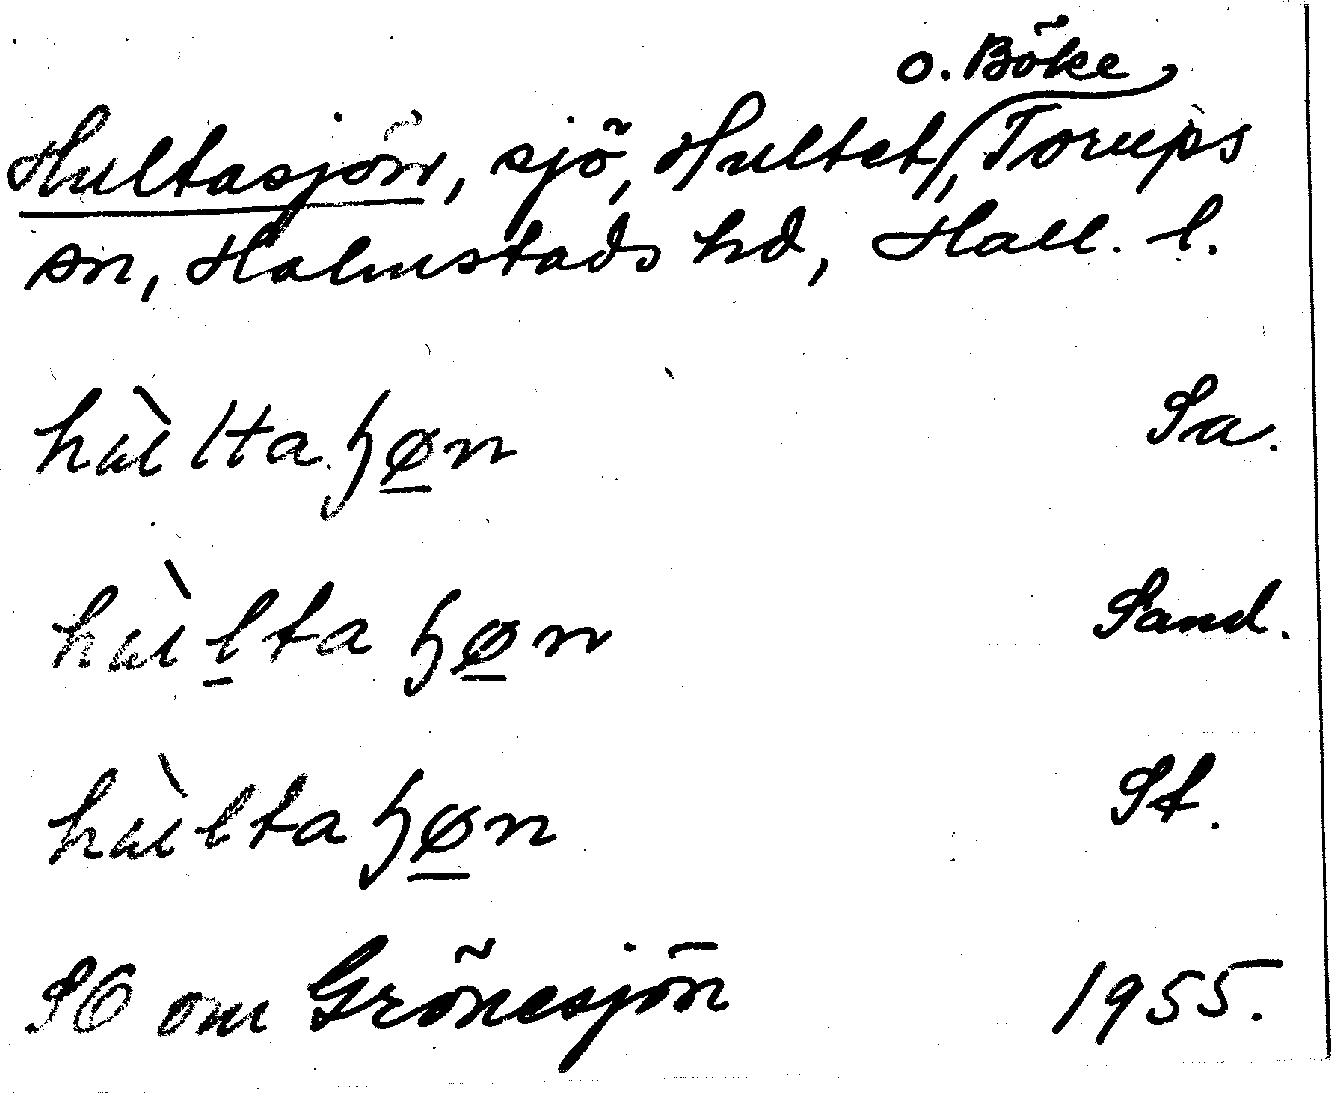 o. Böke
Hultasjön, sjö, Hultet, Torups
sn, Halmstads hd, Hall. l.
Sa.
Sand.
St.
SO om Grönesjön 1955.